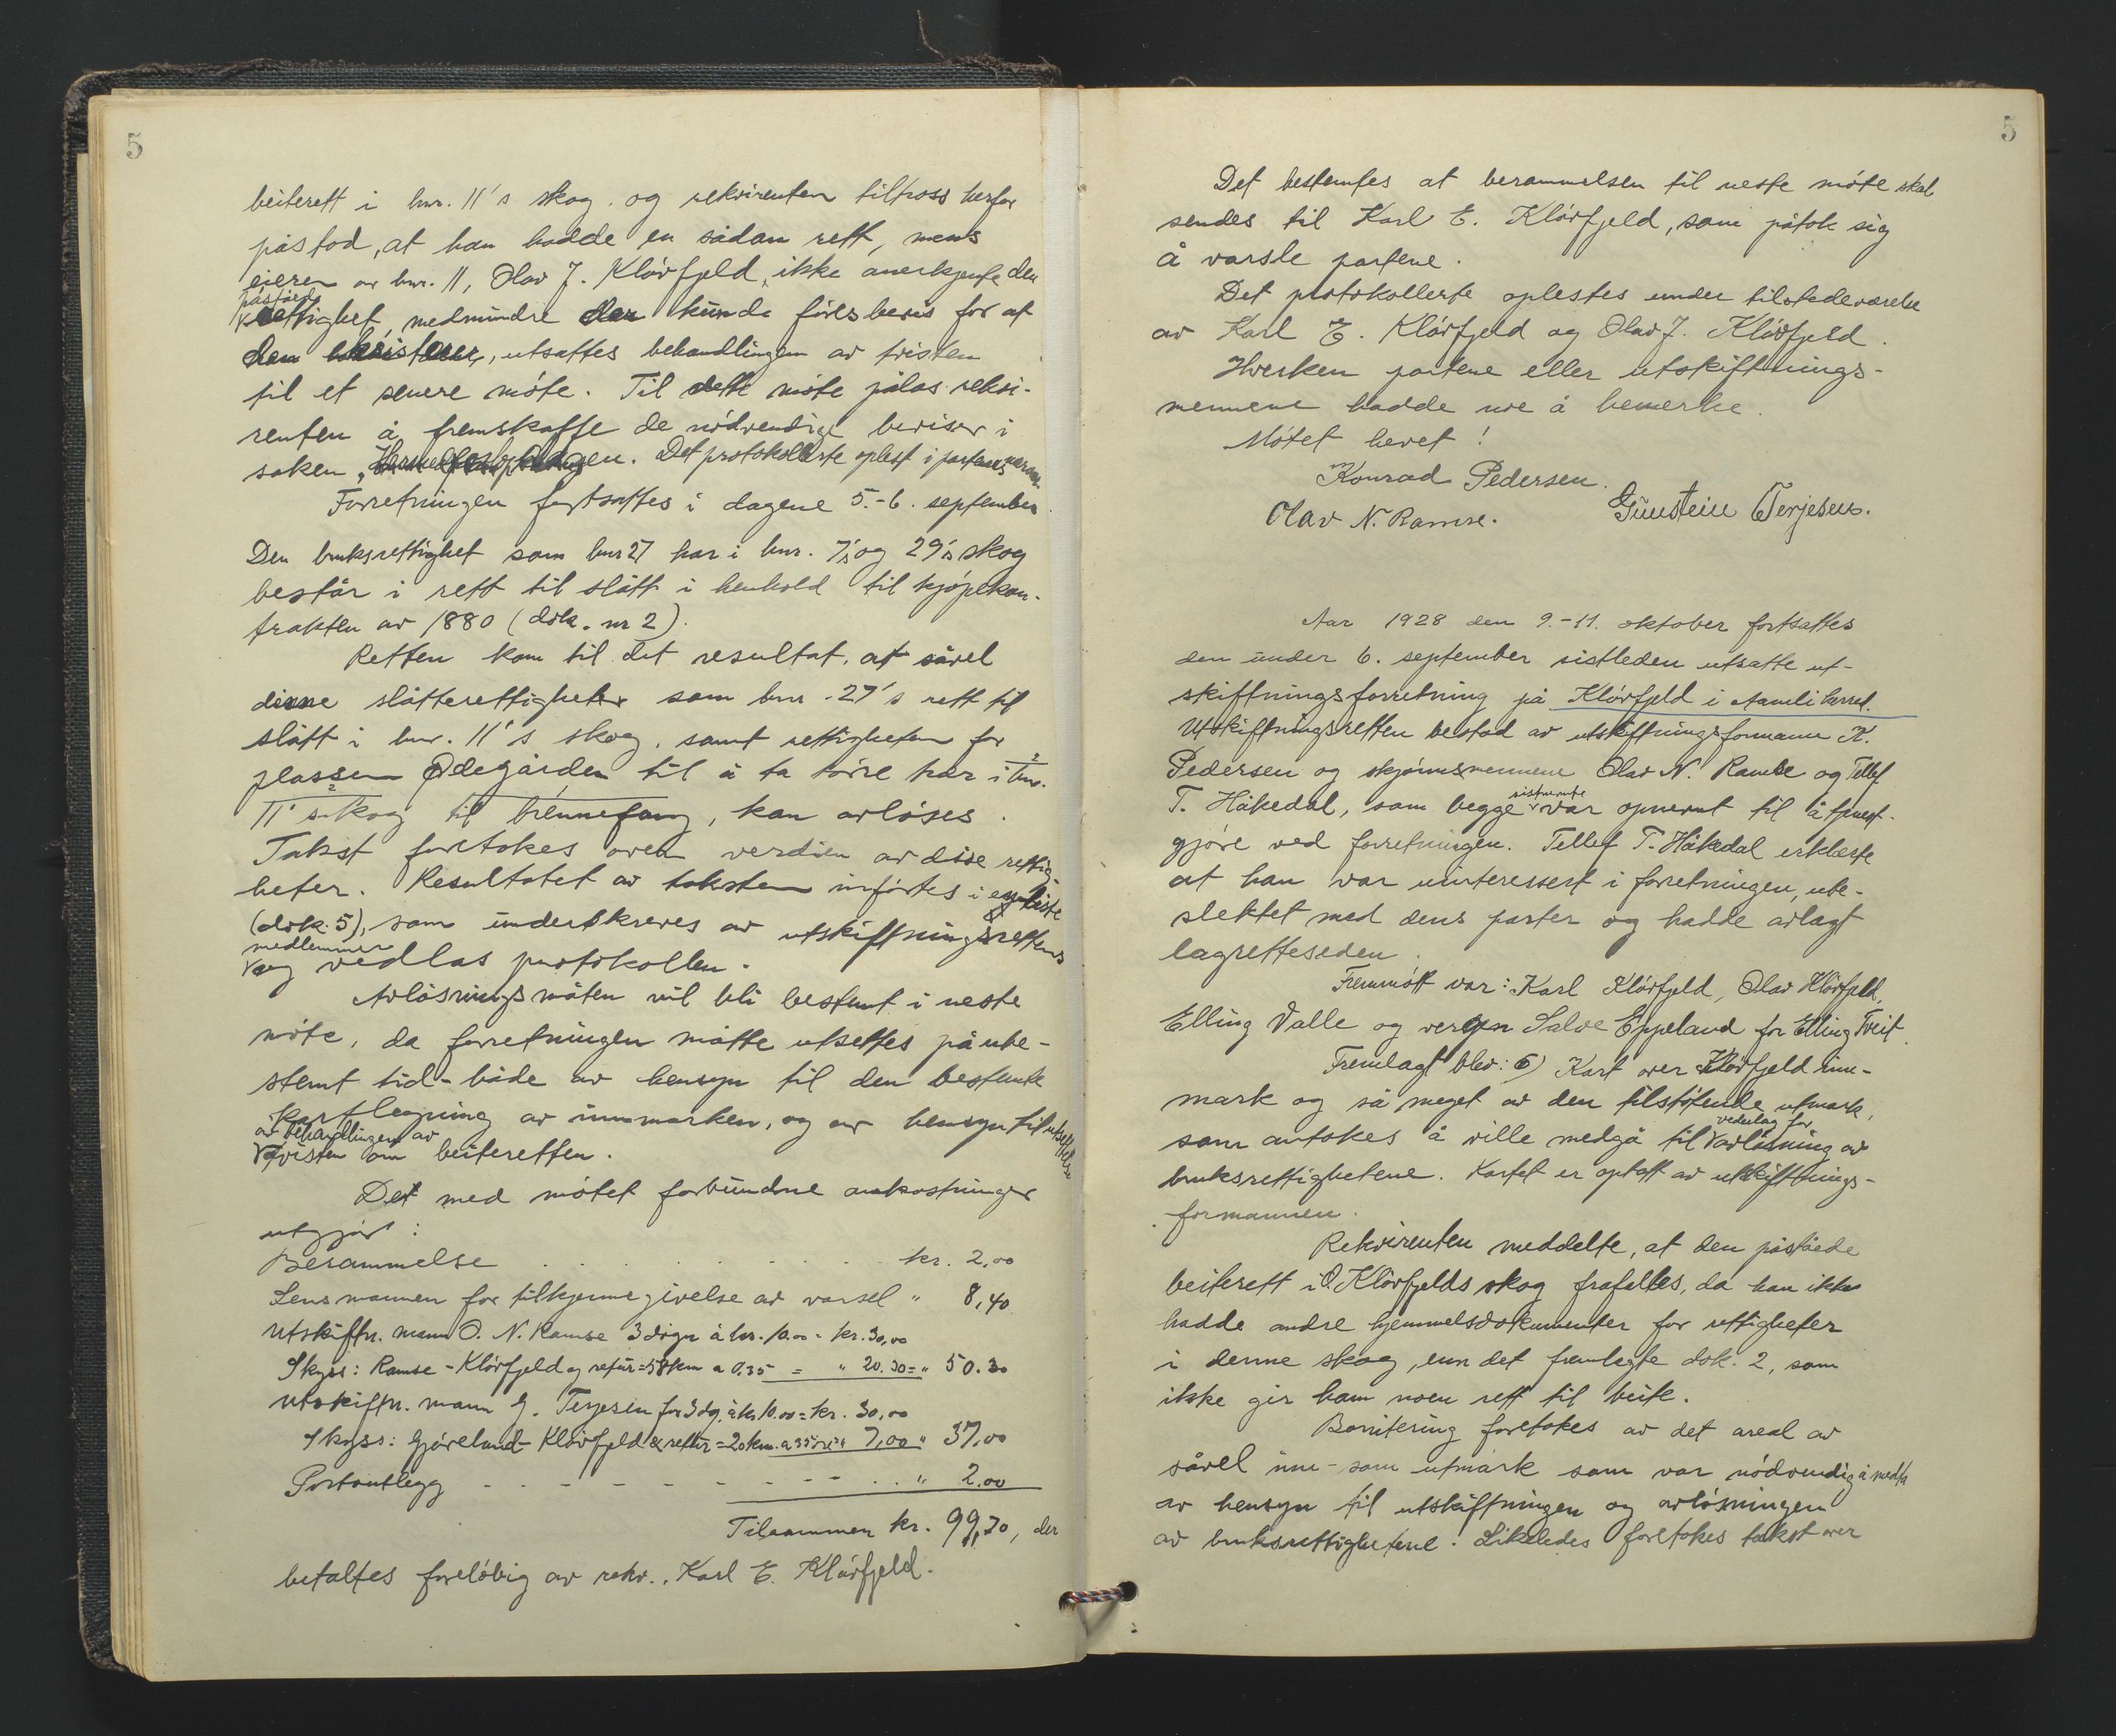 5
beiterett i bnr. 11's skog. og rekvirenten tiltross herfor
påstod, at han hadde en sådan rett, mens
eieren av bnr. 11, Olav J. Klövfjeld, ikke anerkjente den
påståede
rettighet, medmindre der kunde föres bevis for at
den eksisterer, utsattes behandlingen av tvisten
til et senere möte. Til dette möte pålas rekvi-
renten å fremskaffe de nödvendige beviser i
saken. Det protokollerte oplest i partenes nærvær.
Forretningen fortsattes i dagene 5.-6. september.
Den bruksrettighet som bnr 27 har i bnr. 7's og 29's skog
består i rett til slått i henhold til kjöpekon-
trakten av 1880 (dok. nr 2).
Retten kom til det resultat, at såvel
disse slåtterettigheter som bnr. 27's rett til
slått i bnr. 11's skog, samt rettigheten for
plassen Ødegården til å ta törre trær i bnr.
11's skog til brennefang, kan avlöses.
Takst foretokes over verdien av disse rettig-
heter. Resultatet av taksten införtes i en liste
(dok. 5), som underskreves av utskiftningsrettens
medlemmer
og vedlas protokollen.
Avlösningsmåten vil bli bestemt i neste
möte, da forretningen måtte utsettes på ube-
stemt tid - både av hensyn til den bestemte
kartlegning av innmarken, og av hensyn til utsettelsen
av behandlingen av
tvisten om beiteretten.
Det med mötet forbundne omkostninger
utgjör:
Berammelse . . . . . . . kr. 2,00
Lensmannen for tilkjennegivelse av varsel " 8,40
Utskiftn. mann O. N. Ramse 3 dögn à kr. 10.00 = kr. 30,00
Skyss: Ramse - Klövfjeld og retur = 58 km a 0.35 = " 20.30 = " 50.30
Utskiftn. mann G. Terjesen for 3 dg. à kr. 10.00 = kr. 30,00
Skyss: Gjöveland - Klövfjeld & retur = 20 km. a 35 öre " 7,00 " 37,00
Portoutlegg - - - - - - - - . . " 2.00
Tilsammen kr. 99,70, der
betaltes foreløbig av rekv., Karl E. Klövfjeld.
5
Det bestemtes at berammelsen til neste möte skal
sendes til Karl E. Klövfjeld, som påtok sig
å varsle partene.
Det protokollerte oplestes under tilstedeværelse
av Karl E. Klövfjeld og Olav J. Klövfjeld.
Hverken partene eller utskiftnings-
mennene hadde noe å bemerke.
Mötet hevet!
Konrad Pedersen.
Olav N. Ramse. Gunstein Terjesen.
Aar 1928 den 9.-11. oktober fortsattes
den under 6. september sistleden utsatte ut-
skiftningsforretning på Klövfjeld i Aamli herred.
Utskiftningsretten bestod av utskiftningsformann K.
Pedersen og skjönnsmennene Olav N. Ramse og Tellef
T. Håkedal, som begge
sistnevnte
var opnevnt til å tjenest-
gjöre ved forretningen. Tellef T. Håkedal erklærte
at han var uinteressert i forretningen, ube-
slektet med dens parter og hadde avlagt
lagretteseden.
Fremmött var: Karl Klövfjeld, Olav Klövfjeld,
Elling Valle og vergen Salve Eppeland for Elling Tveit.
Fremlagt blev: 6) Kart over Klövfjeld inn-
mark og så meget av den tilstötende utmark,
vederlag for
som antokes å ville medgå til avlösning av
bruksrettighetene. Kartet er optatt av utskiftnings-
formannen.
Rekvirenten meddelte, at den påståede
beiterett i O. Klövfjelds skog frafaltes, da han ikke
hadde andre hjemmelsdokumenter for rettigheter
i denne skog, enn det fremlagte dok. 2, som
ikke gir ham noen rett til beite.
Bonitering foretokes av det areal av
såvel inn- som utmark som var nödvendig å medta
av hensyn til utskiftningen og avlösningen
av bruksrettighetene. Likeledes foretokes takst over